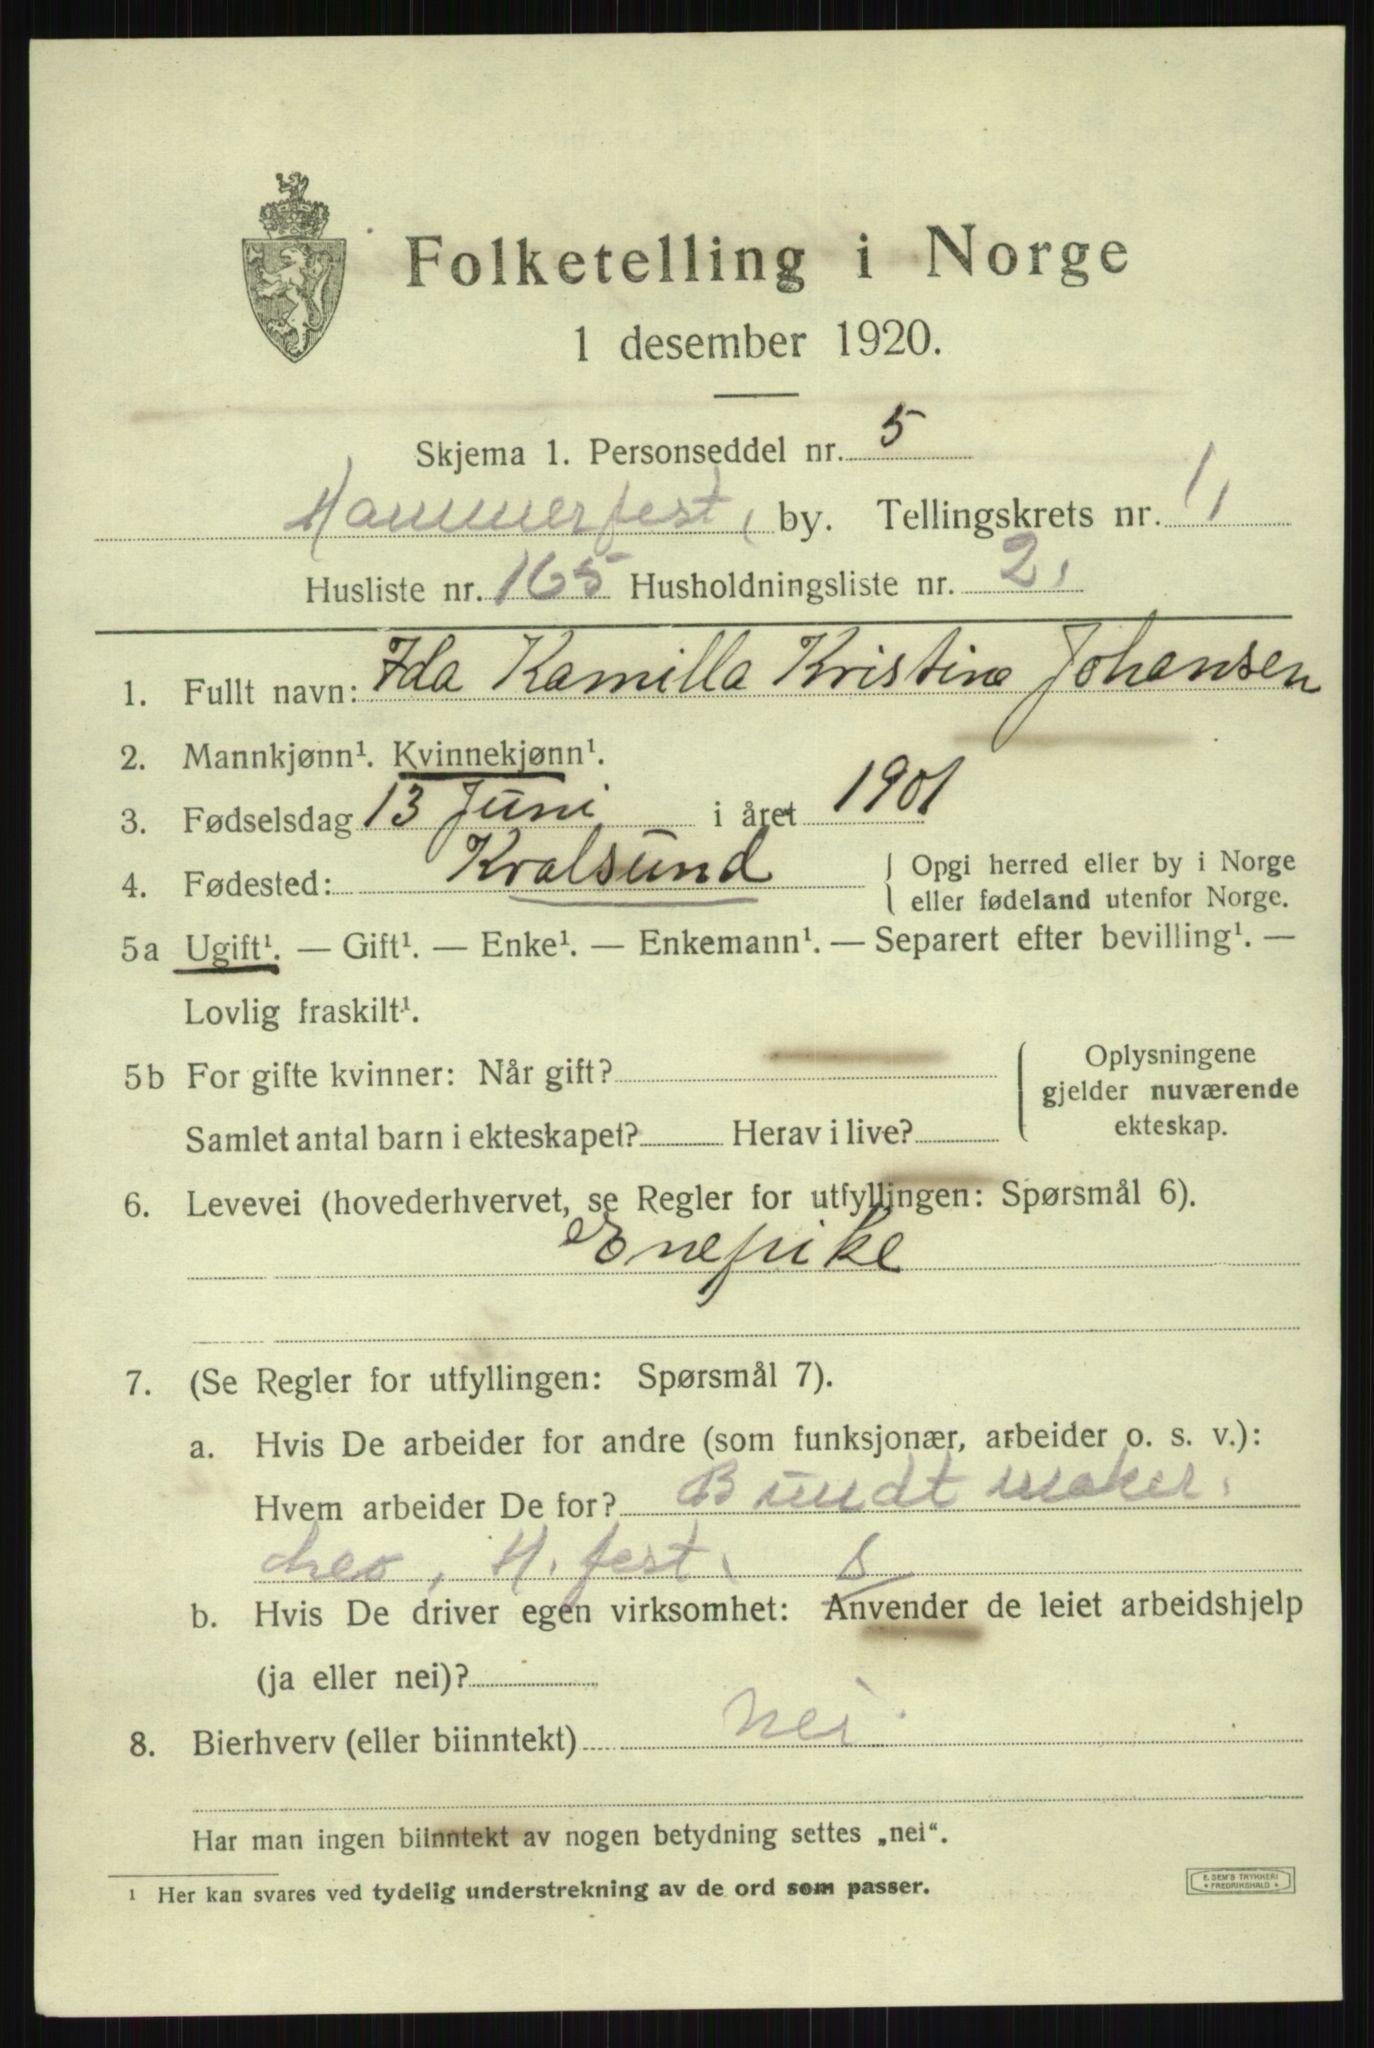 Folketelling i Norge
1 desember 1920.
Skjema 1. Personseddel nr. 5
Hammerfest, by. Tellingskrets nr. 1,
Husliste nr. 165 Husholdningsliste nr. 2,
1. Fullt navn: Ida Kamilla Kristine Johansen
2. Mannkjønn¹. Kvinnekjønn¹.
3. Fødselsdag 13 Juni i året 1901
4. Fødested: Kvalsund { Opgi herred eller by i Norge
eller fødeland utenfor Norge.
5a Ugift¹. — Gift¹. — Enke¹. — Enkemann¹. — Separert efter bevilling¹. —
Lovlig fraskilt¹.
5b For gifte kvinner: Når gift? { Oplysningene
gjelder nuværende
Samlet antal barn i ekteskapet? Herav i live? ekteskap.
6. Levevei (hovederhvervet, se Regler for utfyllingen: Spørsmål 6).
Enepike
7. (Se Regler for utfyllingen: Spørsmål 7).
a. Hvis De arbeider for andre (som funksjonær, arbeider o. s. v.):
Hvem arbeider De for? Bundtmaker
Leo, H.fest.
b. Hvis De driver egen virksomhet: Anvender de leiet arbeidshjelp
(ja eller nei)?
8. Bierhverv (eller biinntekt) Nei
Har man ingen biinntekt av nogen betydning settes „nei“.
¹ Her kan svares ved tydelig understrekning av de ord som passer.
E. SEM'S TRYKKERI
FREDRIKSHALD